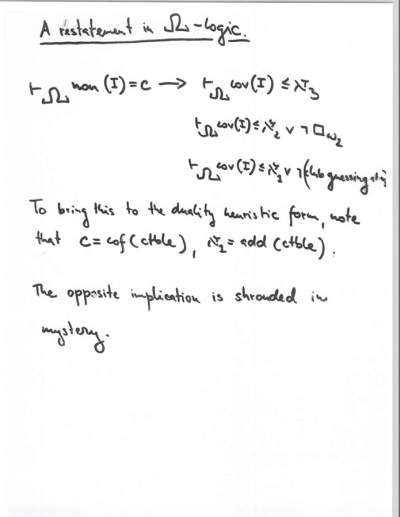 A restatement in Ω-logic.
⊢Ω non(I)=c → ⊢Ω cov(I) ≤ ℵ3
⊢Ω cov(I) ≤ ℵ2 ∨ ¬□ω2
⊢Ω cov(I) ≤ ℵ2 ∨ ¬(club guessing at
To bring this to the duality heuristic form, note
that c = cof(ctble), ℵ1 = add(ctble).
The opposite implication is shrouded in
mystery.